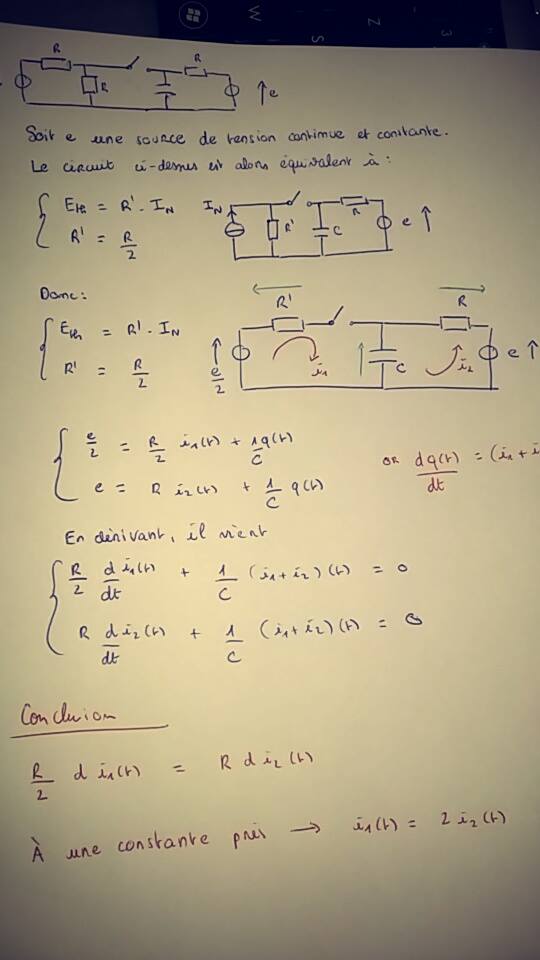 W
S
Z
3
R
R
R
e
Soit e une source de tension continue et constante.
Le circuit ci-dessus est alors équivalent à :
ETh = R' . IN
R' = R/2
IN
R'
C
R
e
Donc :
ETh = R' . IN
R' = R/2
R'
R
e/2
i1
C
i2
e
e/2 = R/2 i1(t) + 1/C q(t)
e = R i2(t) + 1/C q(t)
OR dq(t)/dt = (i1 + i
En dérivant, il vient
R/2 d i1(t)/dt + 1/C (i1+i2)(t) = 0
R d i2(t)/dt + 1/C (i1+i2)(t) = 0
Conclusion
R/2 d i1(t) = R d i2(t)
À une constante près → i1(t) = 2 i2(t)